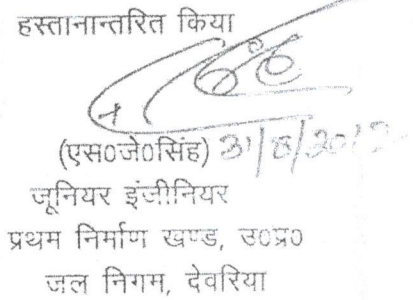 हस्तानान्तरित किया
(एस०जे०सिंह)
जूनियर इंजीनियर
प्रथम निर्माण खण्ड, उ०प्र०
जल निगम, देवरिया